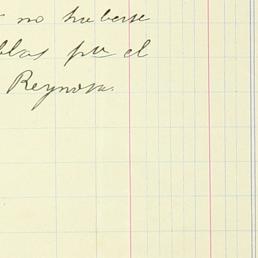 no haberse
por el
Reynosa.